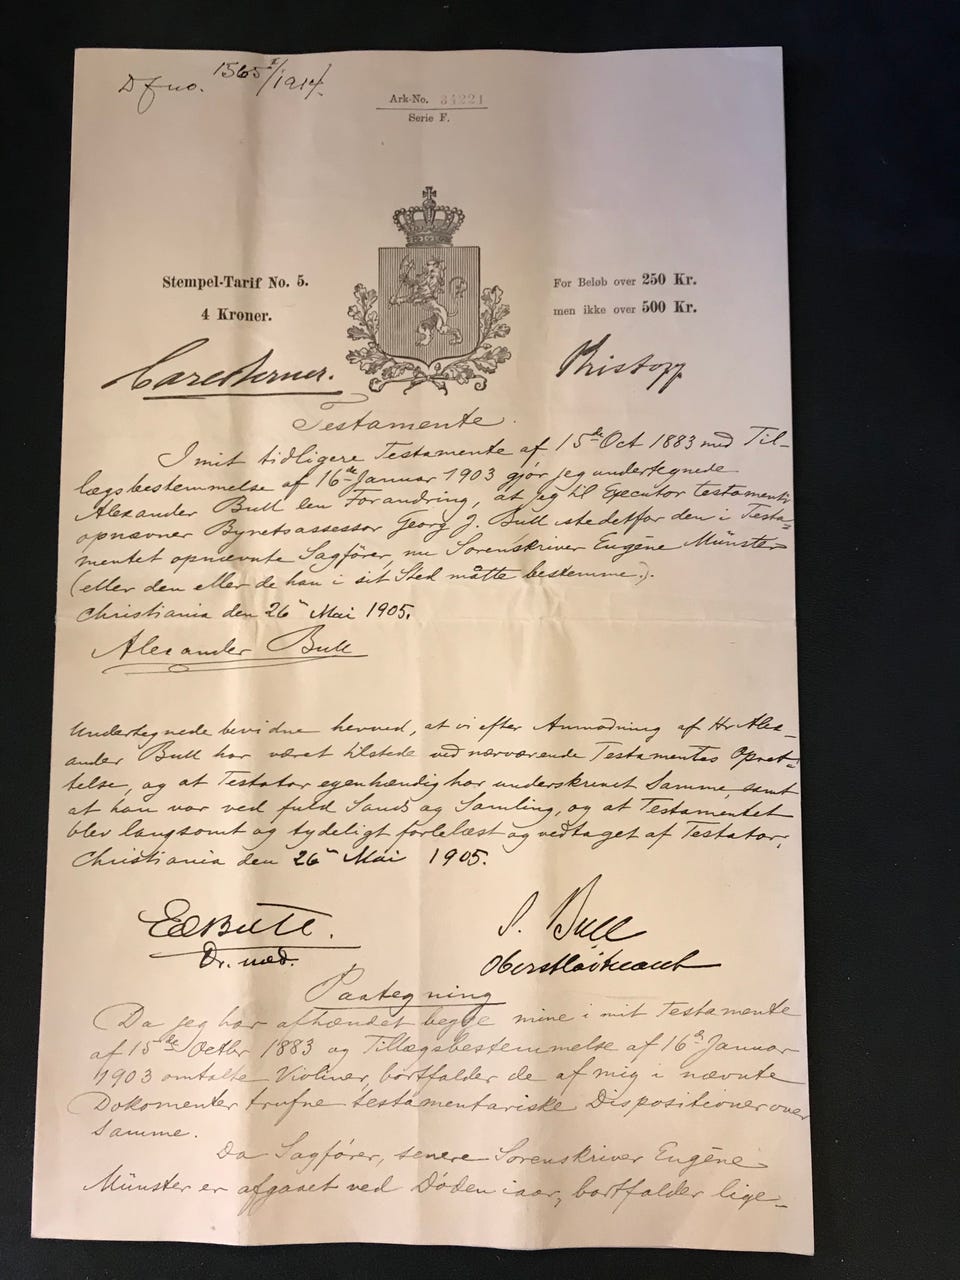 Dfno. 1565 I/1914.
Ark-No. 34221
Serie F.
Stempel-Tarif No. 5.
For Beløb over 250 Kr.
4 Kroner.
men ikke over 500 Kr.
Carl Berner.
Testamente.
I mit tidligere Testamente af 15de Oct 1883 med Til-
lægsbestemmelse af 16de Januar 1903 gjør jeg undertegnede
Alexander Bull den Forandring, at jeg til Executor testamenti
opnævner Byretsassessor Georg J. Bull istedetfor den i Testa=
mentet opnævnte Sagfører, nu Sorenskriver Eugène Münster
(eller den eller de han i sit Sted måtte bestemme.).
Christiania den 26de Mai 1905.
Alexander Bull
Undertegnede bevidne herved, at vi efter Anmodning af Hr Alex-
ander Bull har været tilstede ved nærværende Testamentes Opret=
telse, og at Testator egenhændig har underskrevet Samme, samt
at han var ved fuld Sands og Samling, og at Testamentet
blev langsomt og tydeligt forelæst og vedtaget af Testator.
Christiania den 26de Mai 1905.
Ed Bull.
S. Bull
Dr. med.
Oberstløitnant
Paategning
Da jeg har afhændet begge mine i mit Testamente
af 15de Octbr 1883 og Tillægsbestemmelse af 16de Januar
1903 omtalte Violiner, bortfalder de af mig i nævnte
Dokomenter trufne testamentariske Dispositioner over
samme.
Da Sagfører, senere Sorenskriver Eugène
Münster er afgaaet ved Døden iaar, bortfalder lige-